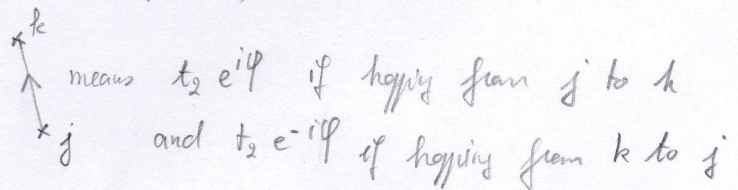 k
means t₂ e^{iφ} if hopping from j to k
j and t₂ e^{-iφ} if hopping from k to j